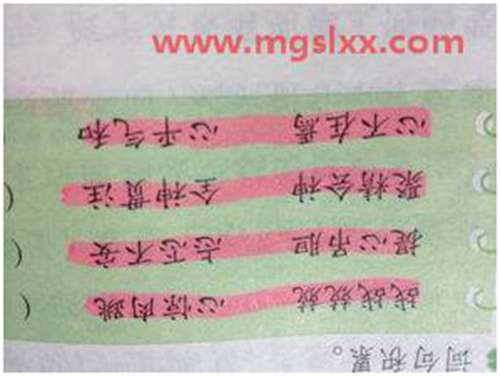 www.mgslxx.com
词句积累。
战战兢兢 心惊肉跳 )
提心吊胆 忐忑不安 )
聚精会神 全神贯注 )
心不在焉 心平气和 )